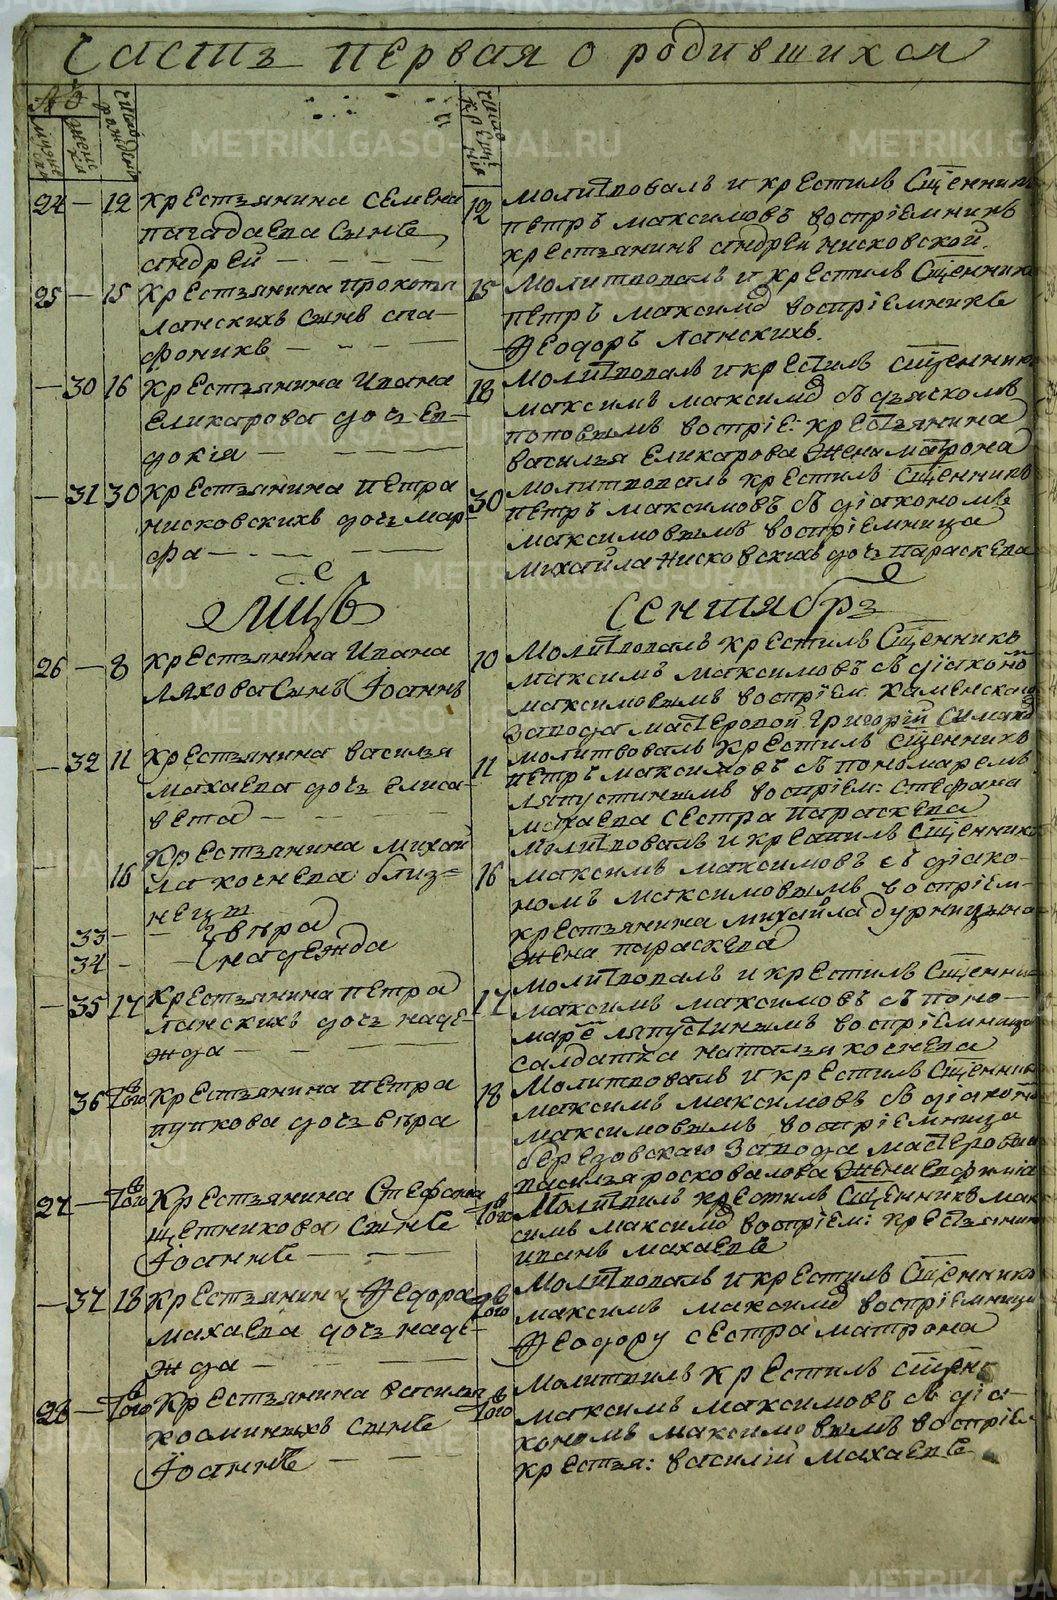 Часть первая о родившихся
№
мужеска
женска
число рожденiя
число крещенiя
24 — 12 Крестьянина Семена
Пагадаева сынъ
Андрей
12 Молитвовалъ и крестилъ Сщенникъ
Петръ Максимовъ воспрiемникъ
крестьянинъ Андрей Нисковской.
25 — 15 Крестьянина Прокопья
Ланскихъ сынъ Спа-
фоникъ
15 Молитвовалъ и крестилъ Сщенникъ
Петръ Максимо воспрiемникъ
Феодоръ Ланскихъ.
— 30 16 Крестьянина Ивана
Еликарова дочь Ев-
докiя
18 Молитвовалъ и крестилъ Сщенникъ
Максимъ Максимо съ дьяскомъ
Поповымъ воспрiе: крестьянина
Василья Еликарова жена Матрона
— 31 30 Крестьянина Петра
Нисковскихъ дочь Мар-
фа
30 Молитвовалъ крестилъ Сщенникъ
Петръ Максимовъ съ дiакономъ
Максимовымъ воспрiемница
Михайла Нисковскихъ дочь Параскева
Мцъ
Сентябрь
26 — 8 Крестьянина Ивана
Ляхова сынъ Iоаннъ
10 Молитвовалъ крестилъ Сщенникъ
Максимъ Максимовъ съ дiаконо
Максимовымъ воспрiем: Каменскаго
завода мастеровой Григорiй
— 32 11 Крестьянина Василья
Махаева дочь Елиса-
вета
11 Молитвовалъ крестилъ Сщенникъ
Петръ Максимовъ съ пономаремъ
Ляпустинымъ воспрiем: Стефана
Махаева сестра Параскева
— 16 Крестьянина Михай
ла Коснева близ=
нецы
33 — Вѣра
34 — Надежда
16 Молитвовалъ и крестилъ Сщенникъ
Максимъ Максимовъ съ дiако-
номъ Максимовымъ воспрiем-
крестьянина Михайла Дурницына
жена Параскева
— 35 17 Крестьянина Петра
Ланскихъ дочь Наде-
жда
17 Молитвовалъ и крестилъ Сщенни
Максимъ Максимовъ съ поно-
маре Ляпустинымъ воспрiемница
салдатка Наталья Коснева
36 Того Крестьянина Петра
Пупкова дочь Вѣра
18 Молитвовалъ и крестилъ Сщенникъ
Максимъ Максимовъ съ дiаконо
Максимовымъ воспрiемница
Березовскаго завода мастероваго
Василья Росковалова жена Евфимiа
27 — Того Крестьянина Стефана
Щетникова сынъ
Iоаннъ
Того Молитвилъ крестилъ Сщенникъ Мак
симъ Максимо воспрiем: крестьянин
Иванъ Махаевъ
— 37 18 Крестьянина Федора
Махаева дочь Наде-
жда
Того Молитвовалъ и крестилъ Сщенникъ
Максимъ Максимо воспрiемница
Феодору сестра Матрона
28 — Того Крестьянина Василья
Косминыхъ сынъ
Iоаннъ
Того Молитвилъ крестилъ Сщен
Максимъ Максимовъ съ дiа-
кономъ Максимовымъ воспрiем
крестья: Василiй Махаевъ